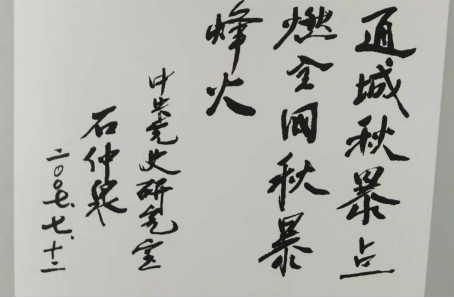 通城秋暴点
燃全国秋暴
烽火
中央党史研究室
石仲泉
二〇〇七、七、十二